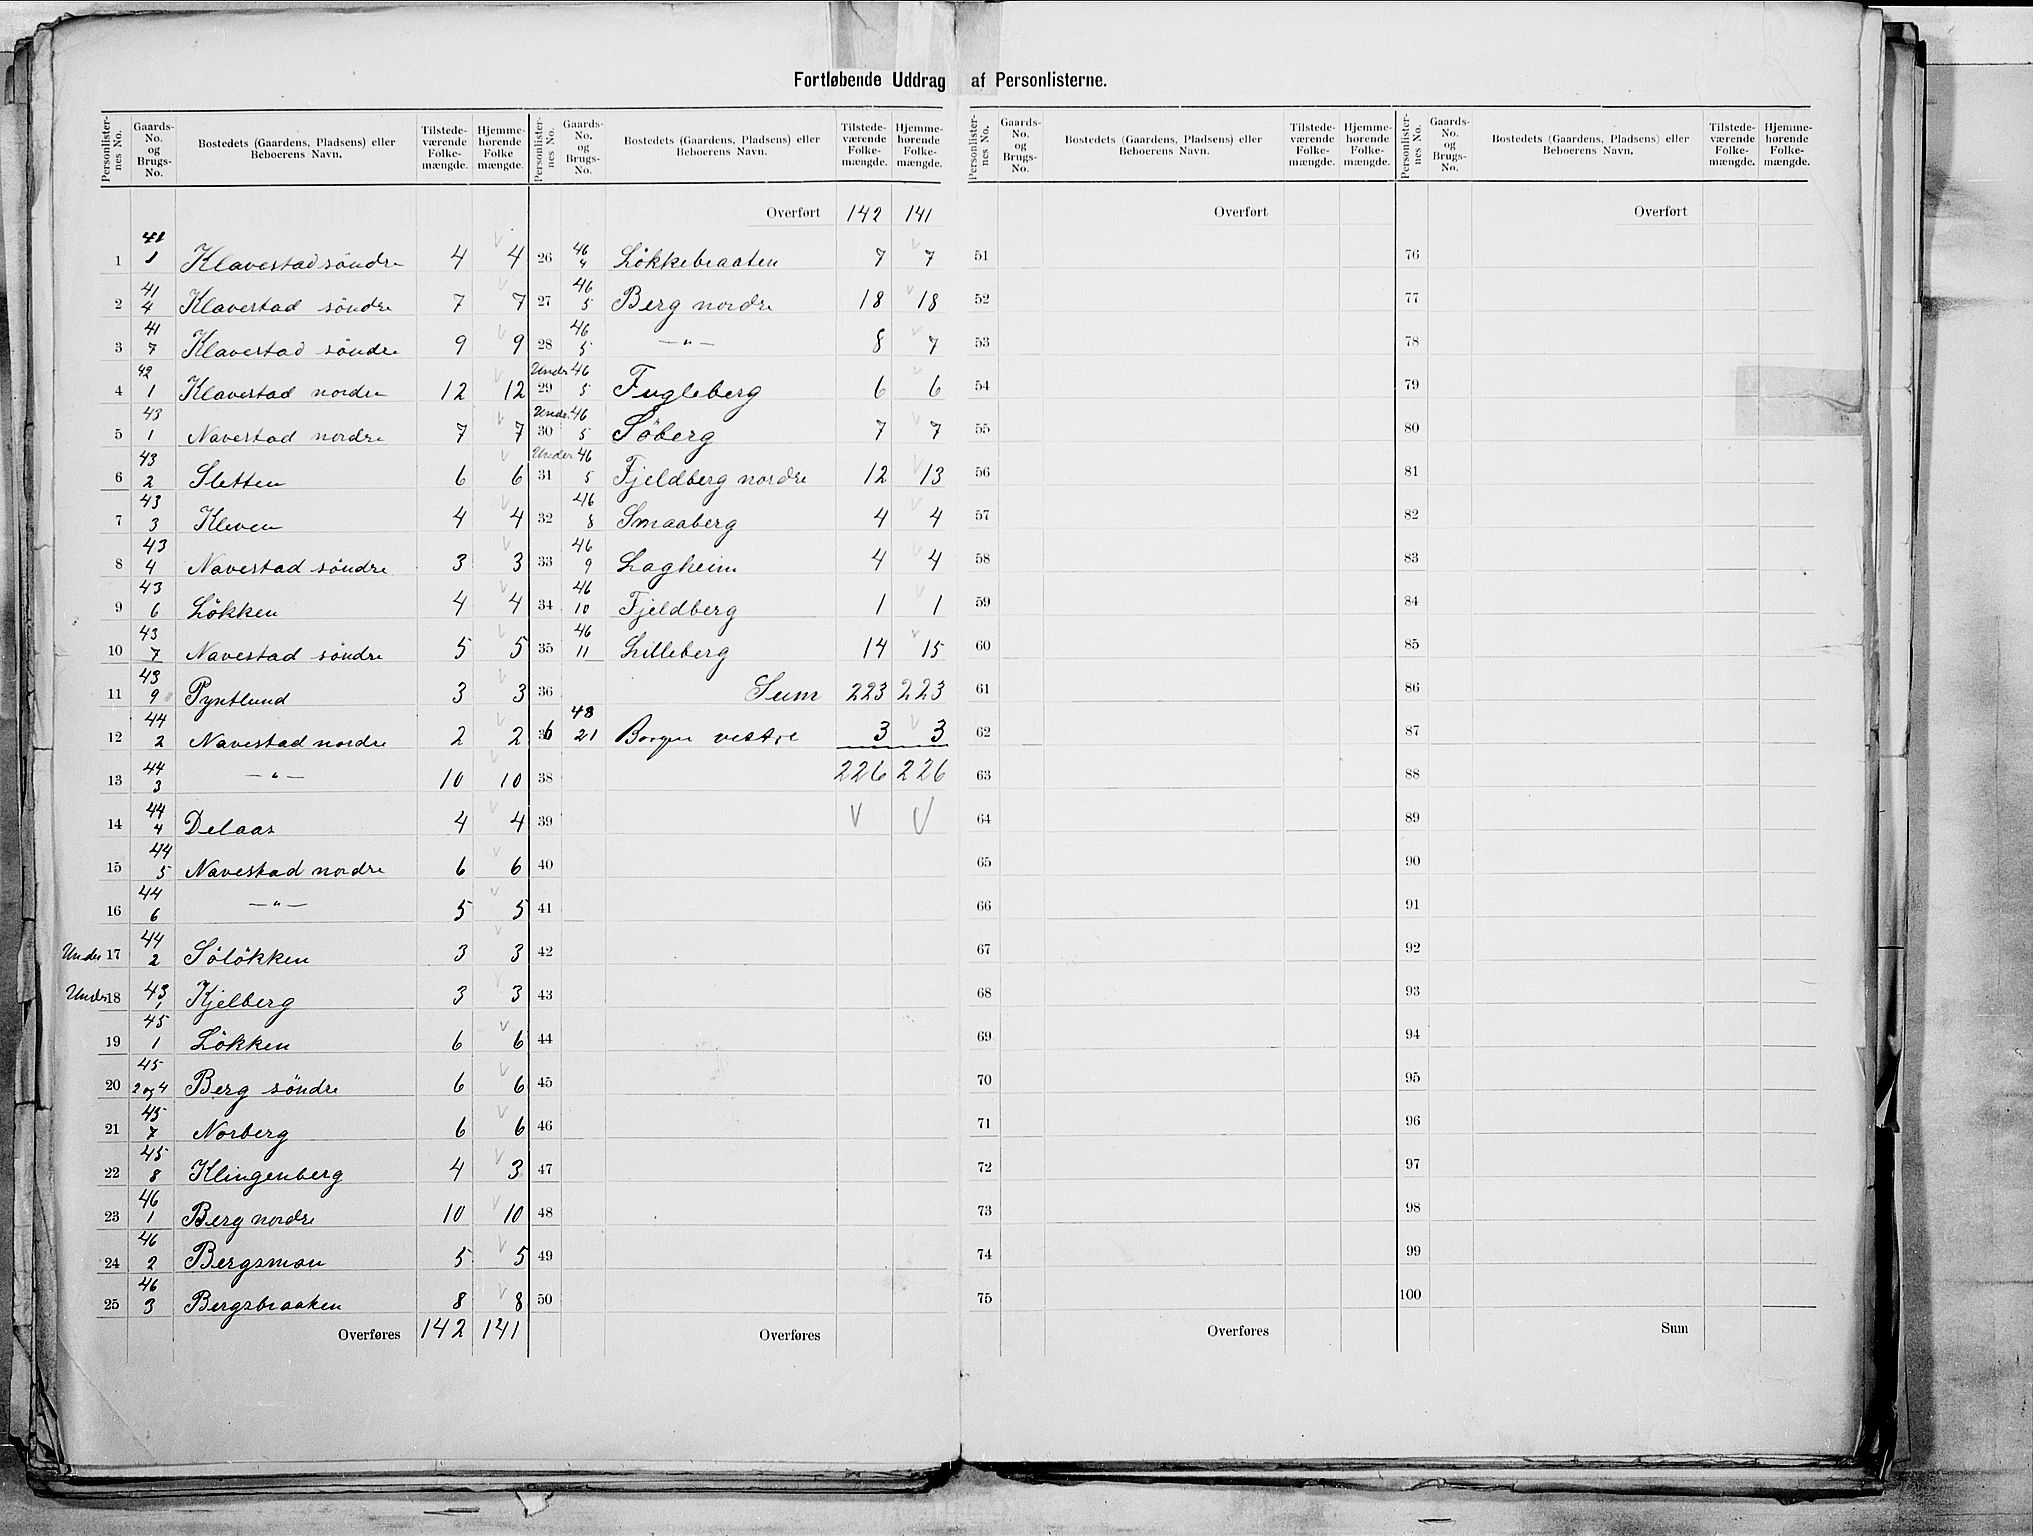 Fortløbende Uddrag af Personlisterne.
Personlister-nes No. | Gaards-No. og Brugs-No. | Bostedets (Gaardens, Pladsens) eller Beboerens Navn. | Tilstede-værende Folke-mængde. | Hjemme-hørende Folke mængde.
1 41/1 Klavestad söndre 4 4
2 41/4 Klavestad söndre 7 7
3 41/7 Klavestad söndre 9 9
4 42/1 Klavestad nordre 12 12
5 43/1 Navestad nordre 7 7
6 43/2 Sletten 6 6
7 43/3 Kleven 4 4
8 43/4 Navestad söndre 3 3
9 43/6 Løkken 4 4
10 43/7 Navestad söndre 5 5
11 43/9 Pyntlund 3 3
12 44/2 Navestad nordre 2 2
13 44/3 —"— 10 10
14 44/4 Delaas 4 4
15 44/5 Navestad nordre 6 6
16 44/6 —"— 5 5
Under 17 44/2 Söløkken 3 3
Under 18 43/1 Kjelberg 3 3
19 45/1 Løkken 6 6
20 45/2 og 4 Berg söndre 6 6
21 45/7 Norberg 6 6
22 45/8 Klingenberg 4 3
23 46/1 Berg nordre 10 10
24 46/2 Bergsmon 5 5
25 46/3 Bergsbraaken 8 8
Overføres 142 141
Personlister-nes No. | Gaards-No. og Brugs-No. | Bostedets (Gaardens, Pladsens) eller Beboerens Navn. | Tilstede-værende Folke-mængde. | Hjemme-hørende Folke-mængde.
Overført 142 141
26 46/4 Løkkebraaten 7 7
27 46/5 Berg nordre 18 18
28 46/5 —"— 8 7
29 Under 46/5 Fugleberg 6 6
30 Under 46/5 Söberg 7 7
31 Under 46/5 Fjeldberg nordre 12 13
32 46/8 Smaaberg 4 4
33 46/9 Lagheim 4 4
34 46/10 Fjeldberg 1 1
35 46/11 Lilleberg 14 15
36 Sum 223 223
36 48/21 Borgen vestre 3 3
38 226 226
39
40
41
42
43
44
45
46
47
48
49
50
Overføres
Personlister-nes No. | Gaards-No. og Brugs-No. | Bostedets (Gaardens, Pladsens) eller Beboerens Navn. | Tilstede-værende Folke-mængde. | Hjemme-hørende Folke-mængde.
Overført
51
52
53
54
55
56
57
58
59
60
61
62
63
64
65
66
67
68
69
70
71
72
73
74
75
Overføres
Personlister-nes No. | Gaards-No. og Brugs-No. | Bostedets (Gaardens, Pladsens) eller Beboerens Navn. | Tilstede-værende Folke-mængde. | Hjemme-hørende Folke-mængde.
Overført
76
77
78
79
80
81
82
83
84
85
86
87
88
89
90
91
92
93
94
95
96
97
98
99
100
Sum